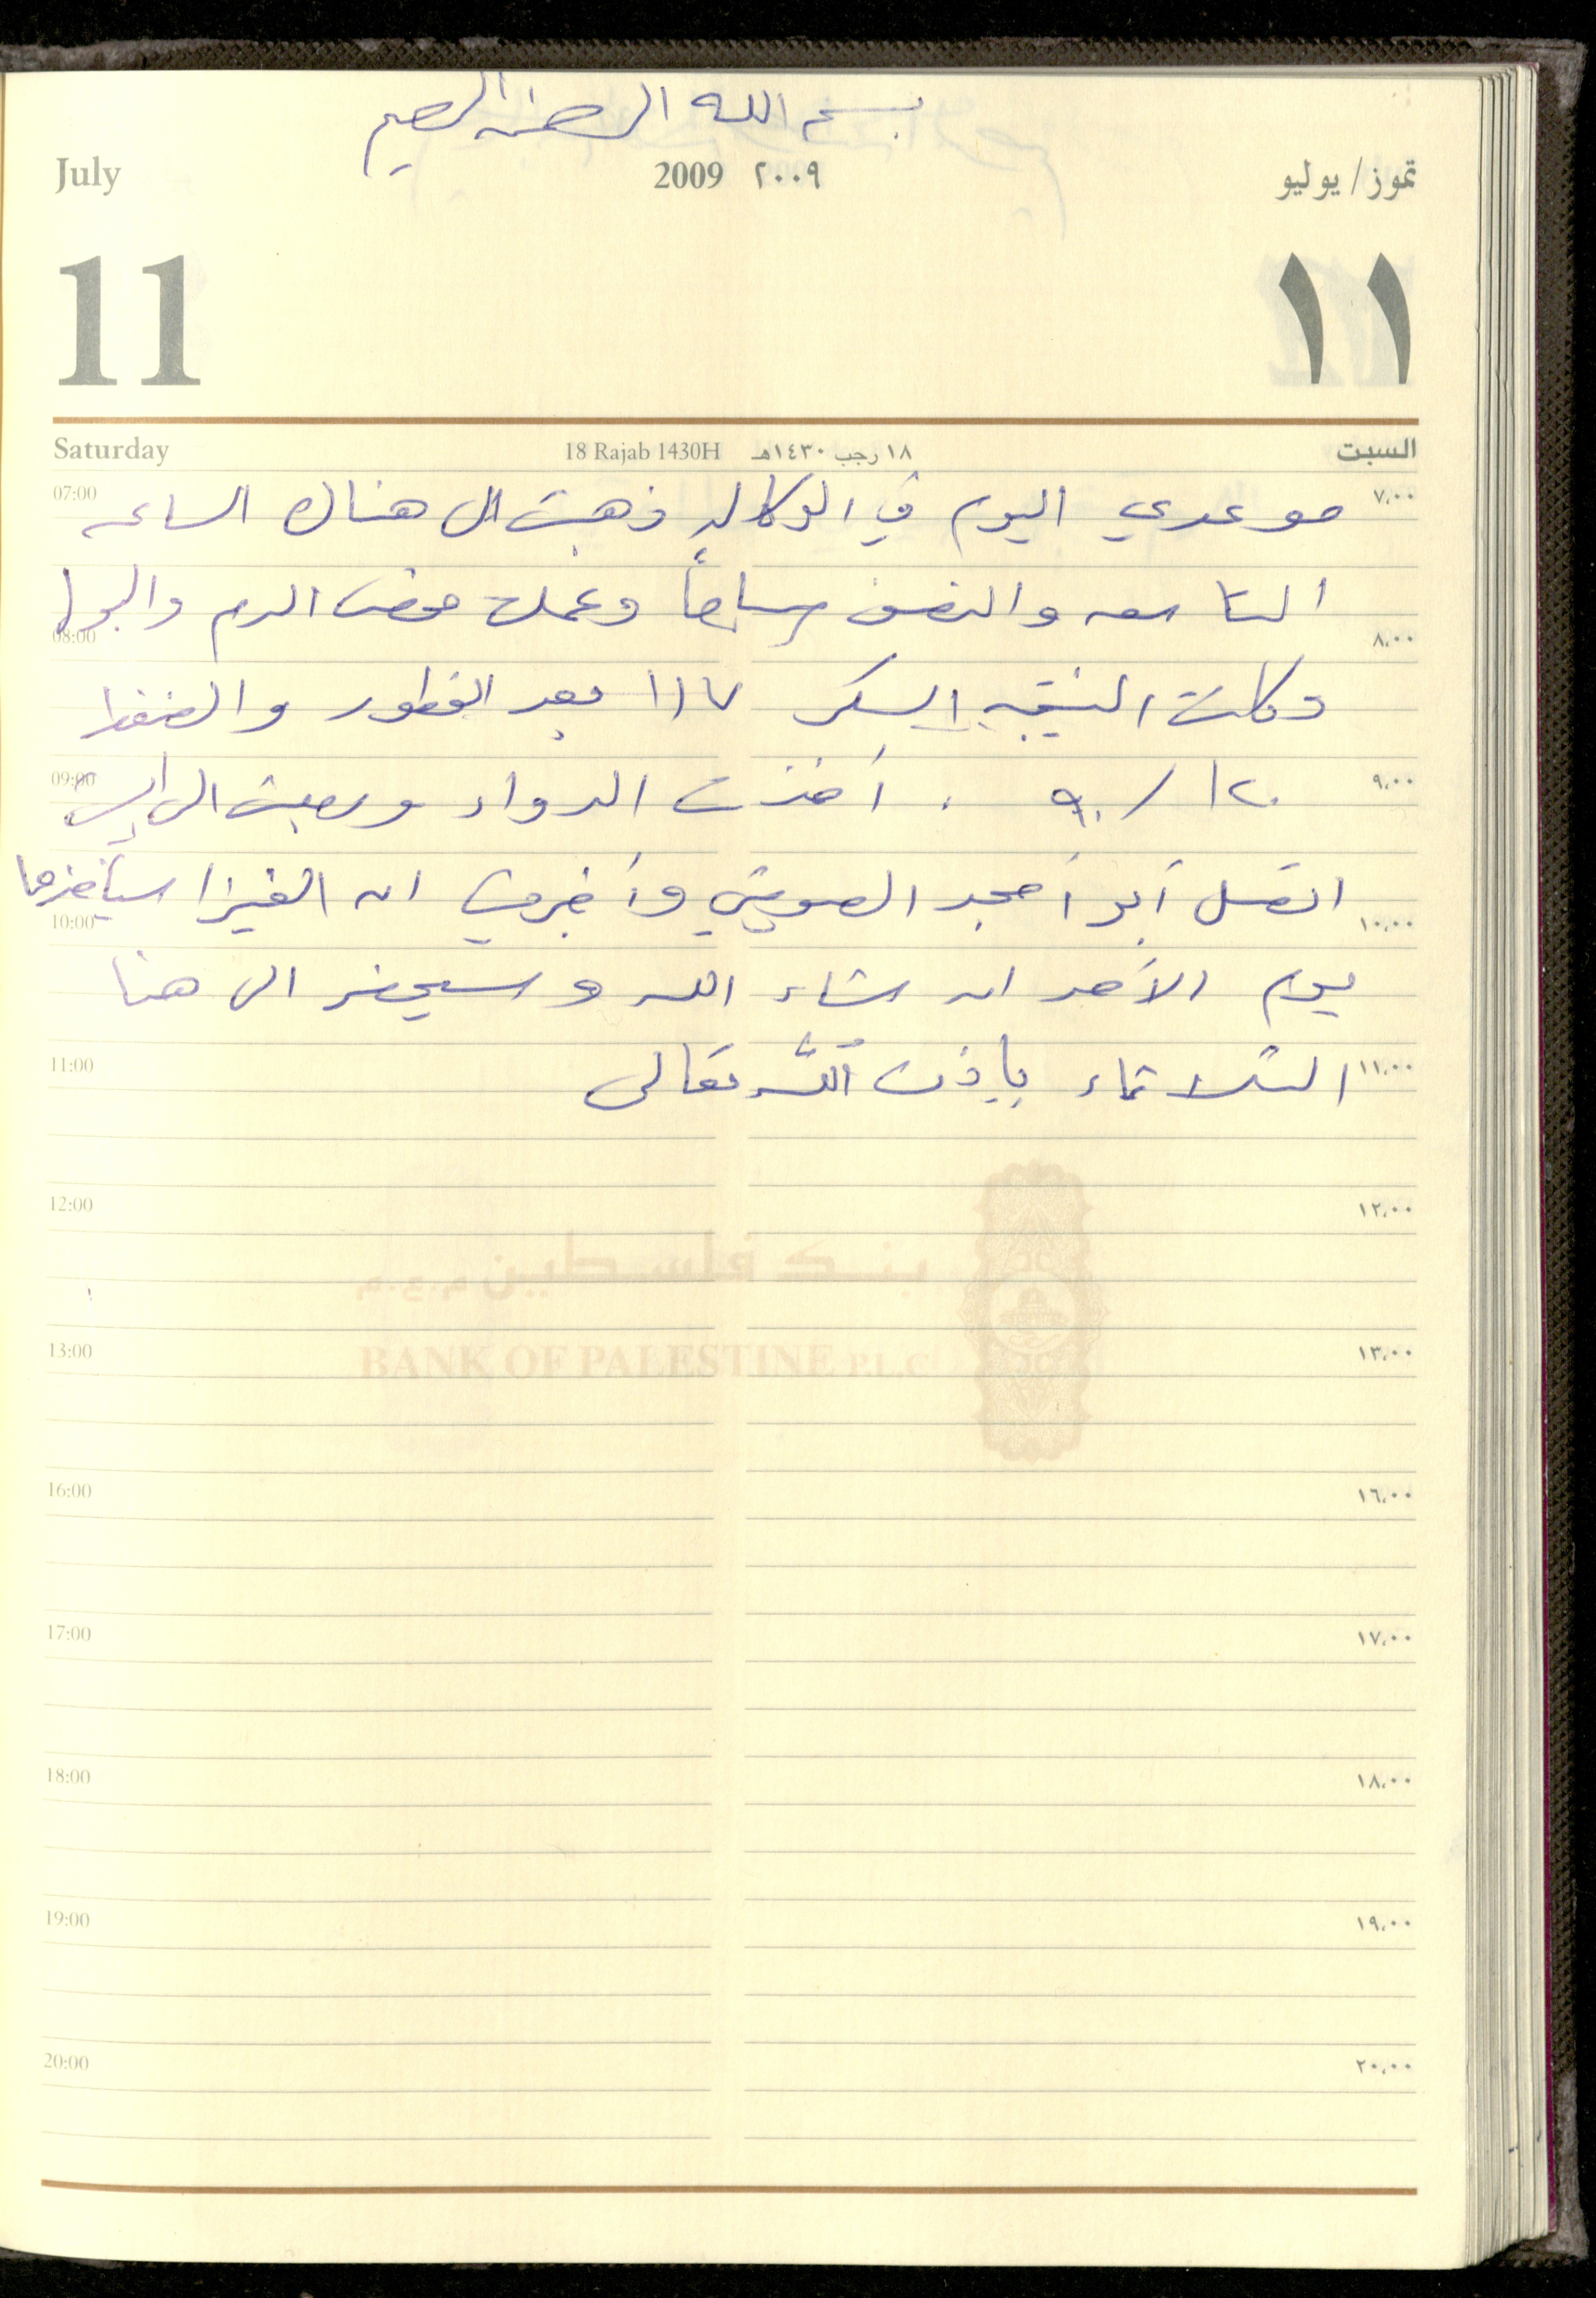 بسم الله الرحمن الرحيم
July 2009 ٢٠٠٩ تموز / يوليو
11 ١١
Saturday 18 Rajab 1430H ١٨ رجب ١٤٣٠هـ السبت
07:00 موعدي اليوم في الوكاله ذهبت الى هناك الساعه ٧،٠٠
التاسعه والنصف صباحاً وعملت فحص الدم والبول
08:00 ٨،٠٠
وكانت النتيجه السكر ١١٧ بعد الفطور والضغط
09:00 ١٢٠ / ٩٠ . أخذت الدواء ورجعت الى البيت ٩،٠٠
اتصل أبو أمجد وأخبرني ان الفيزا سيأخذها
10:00 ١٠،٠٠
يوم الأحد ان شاء الله وسيحضر الى هنا
11:00 الثلاثاء بإذن الله تعالى ١١،٠٠
12:00 ١٢،٠٠
بنك فلسطين م.ع.م
13:00 ١٣،٠٠
BANK OF PALESTINE P.L.C
16:00 ١٦،٠٠
17:00 ١٧،٠٠
18:00 ١٨،٠٠
19:00 ١٩،٠٠
20:00 ٢٠،٠٠